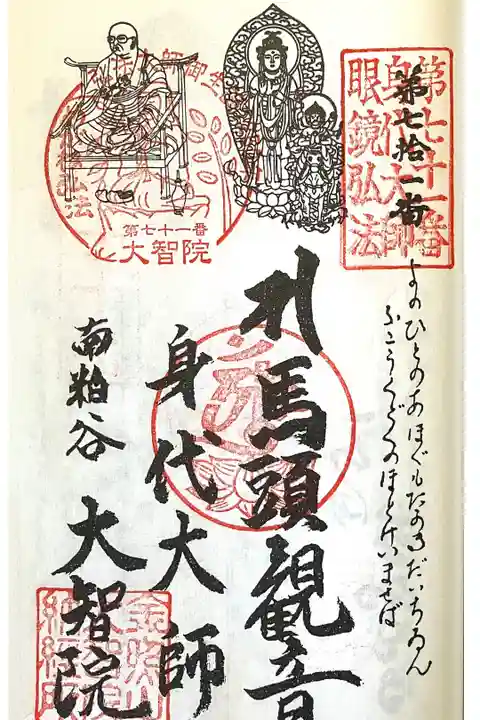 第七十一番
身代大師
眼鏡弘法
第七拾一番
よのひとのあほぐもたかきだいちゐん
ふこうくどくのほとけいませば
馬頭観音
身代大師
南粕谷 大智院
弘法
第七十一番
大智院